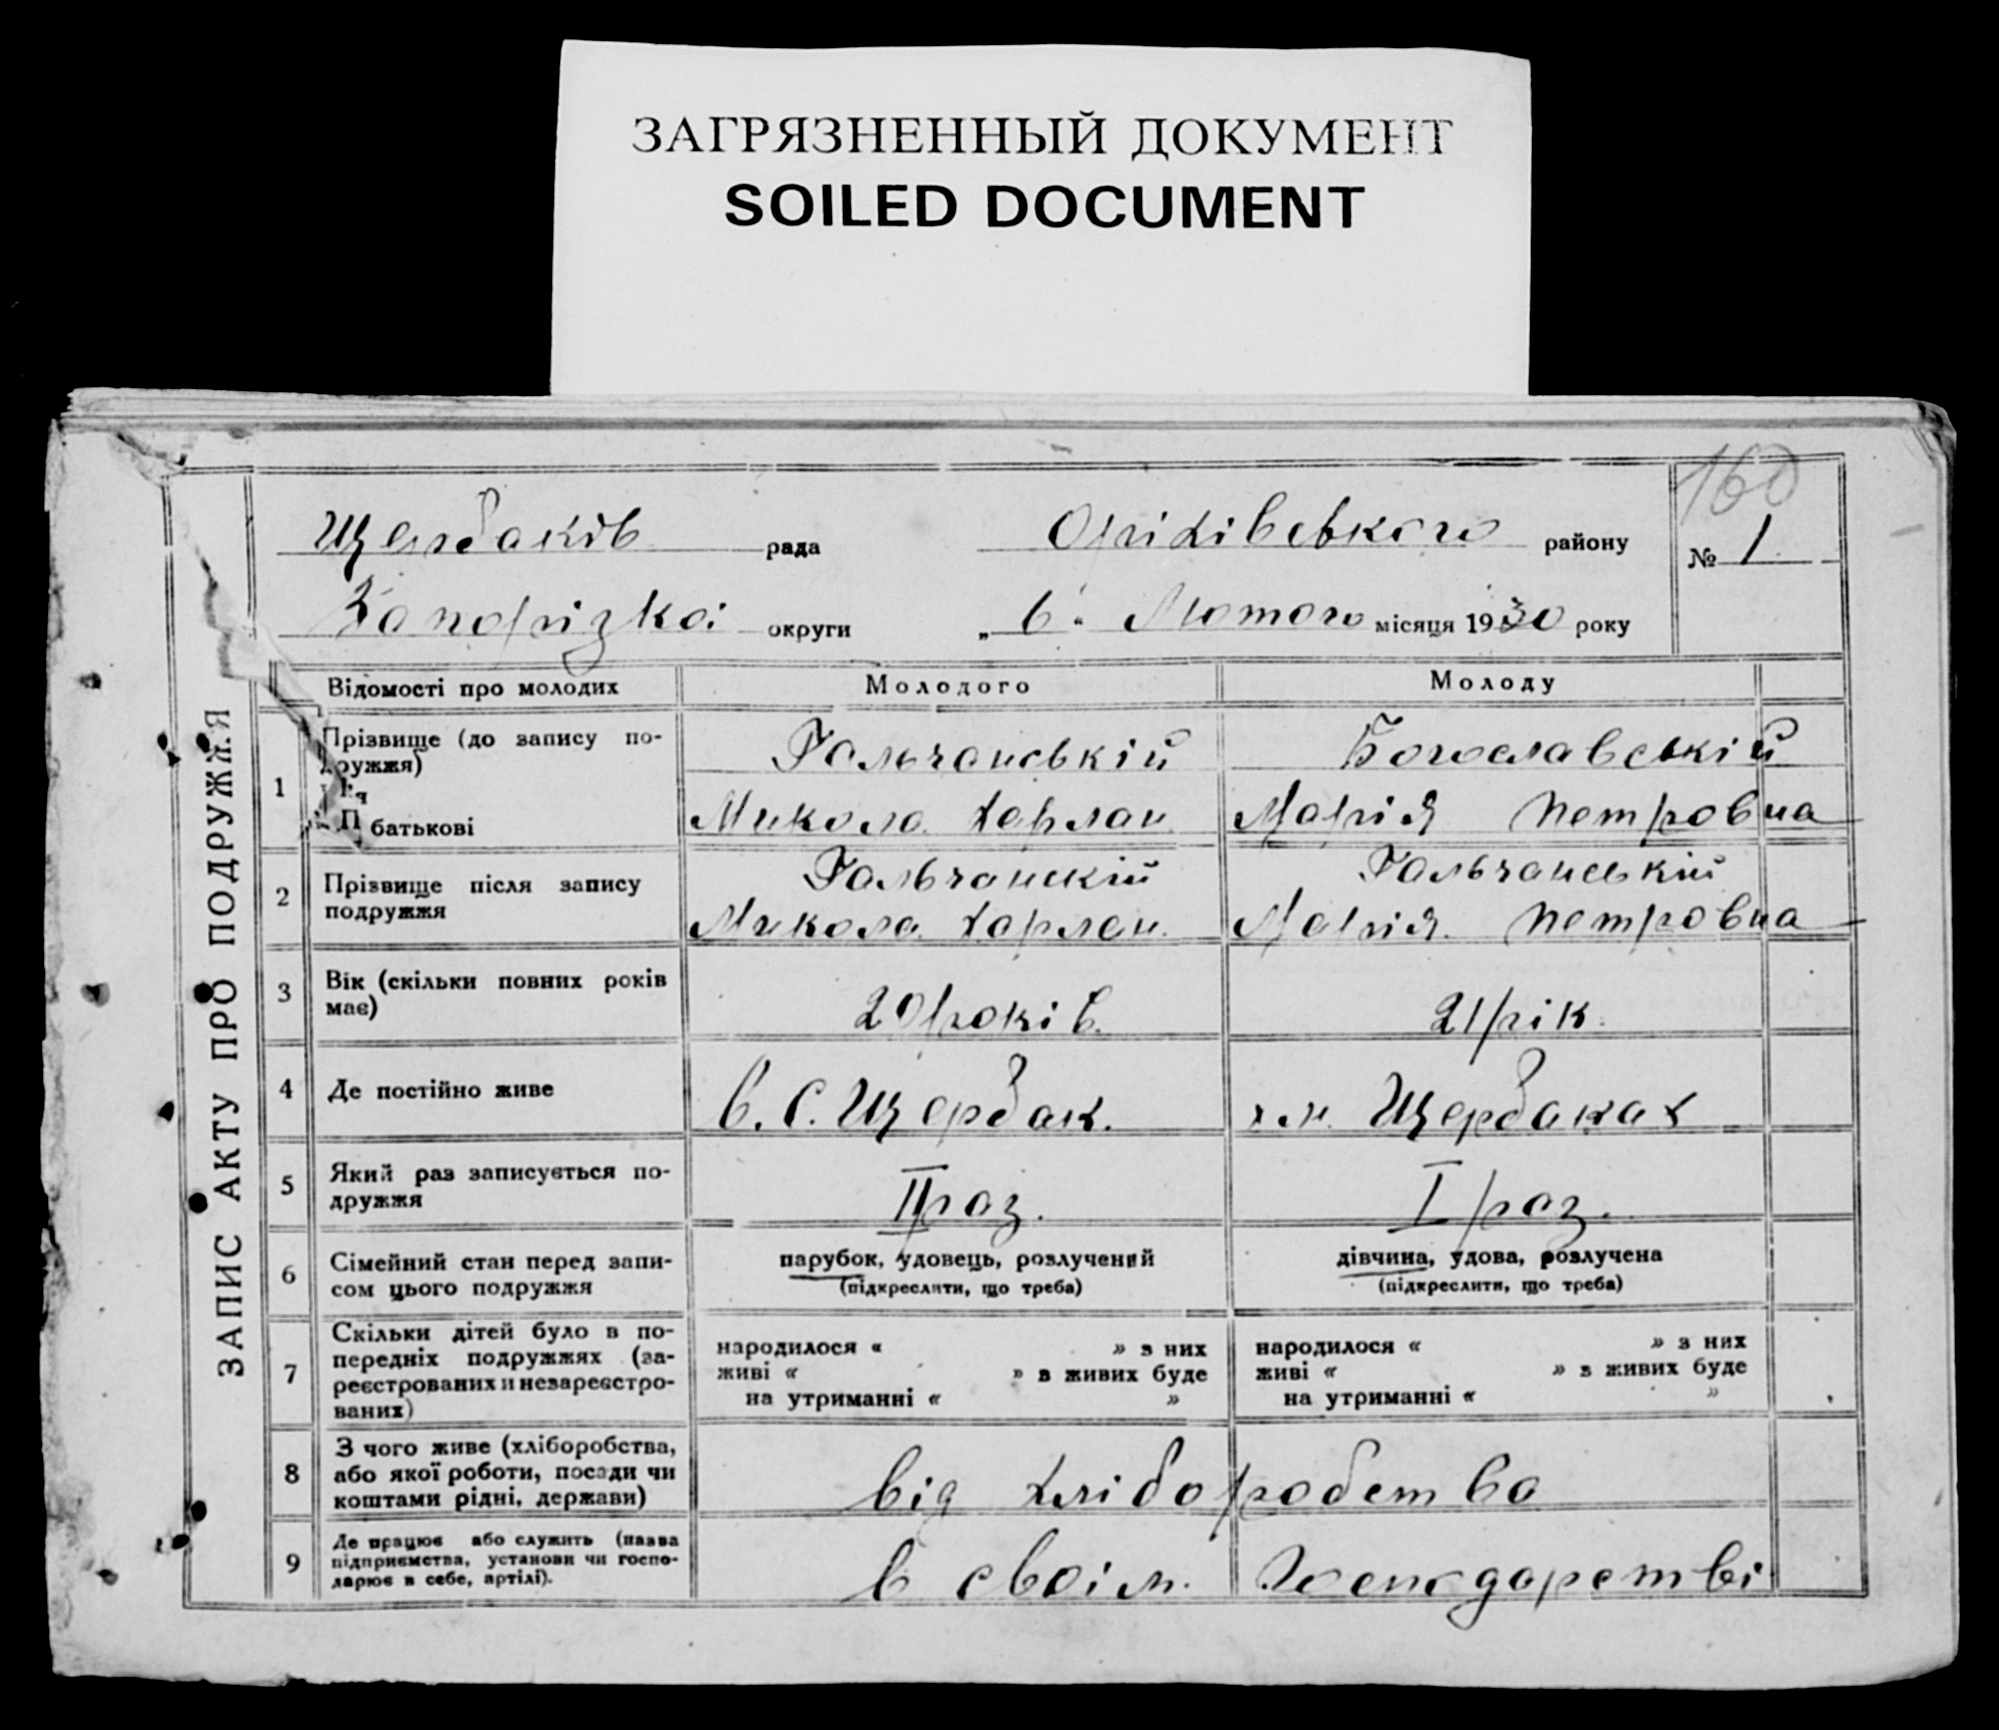 ЗАГРЯЗНЕННЫЙ ДОКУМЕНТ
SOILED DOCUMENT
160
Щербаків рада Оріхівського району № 1
Запорізкої округи „ 6 " Лютого місяця 1930 року
ЗАПИС АКТУ ПРО ПОДРУЖЖЯ
Відомості про молодих Молодого Молоду
1 Прізвище (до запису по-
дружжя)
Гальчанський Богославський
П батькові
Микола Харлан. Марія Петровна
2 Прізвище після запису
подружжя
Гальчанский Гальчанський
Микола Харлан. Марія Петровна
3 Вік (скільки повних років
має)
20 років. 21 рік.
4 Де постійно живе
в. С. Щербак. Щербаках
5 Який раз записується по-
дружжя
II раз. I раз.
6 Сімейний стан перед запи-
сом цього подружжя
парубок, удовець, розлучений
(підкреслити, що треба)
дівчина, удова, розлучена
(підкреслити, що треба)
7 Скільки дітей було в по-
передніх подружжях (за-
реєстрованих и незареєстро-
ваних)
народилося « » з них
живі « » в живих буде
на утриманні « »
народилося « » з них
живі « » в живих буде
на утриманні « »
8 З чого живе (хліборобства,
або якої роботи, посади чи
коштами рідні, держави)
від хліборобства
9 Де працює або служить (назва
підприємства, установи чи госпо-
дарює в себе, артілі).
в своїм. Господарстві